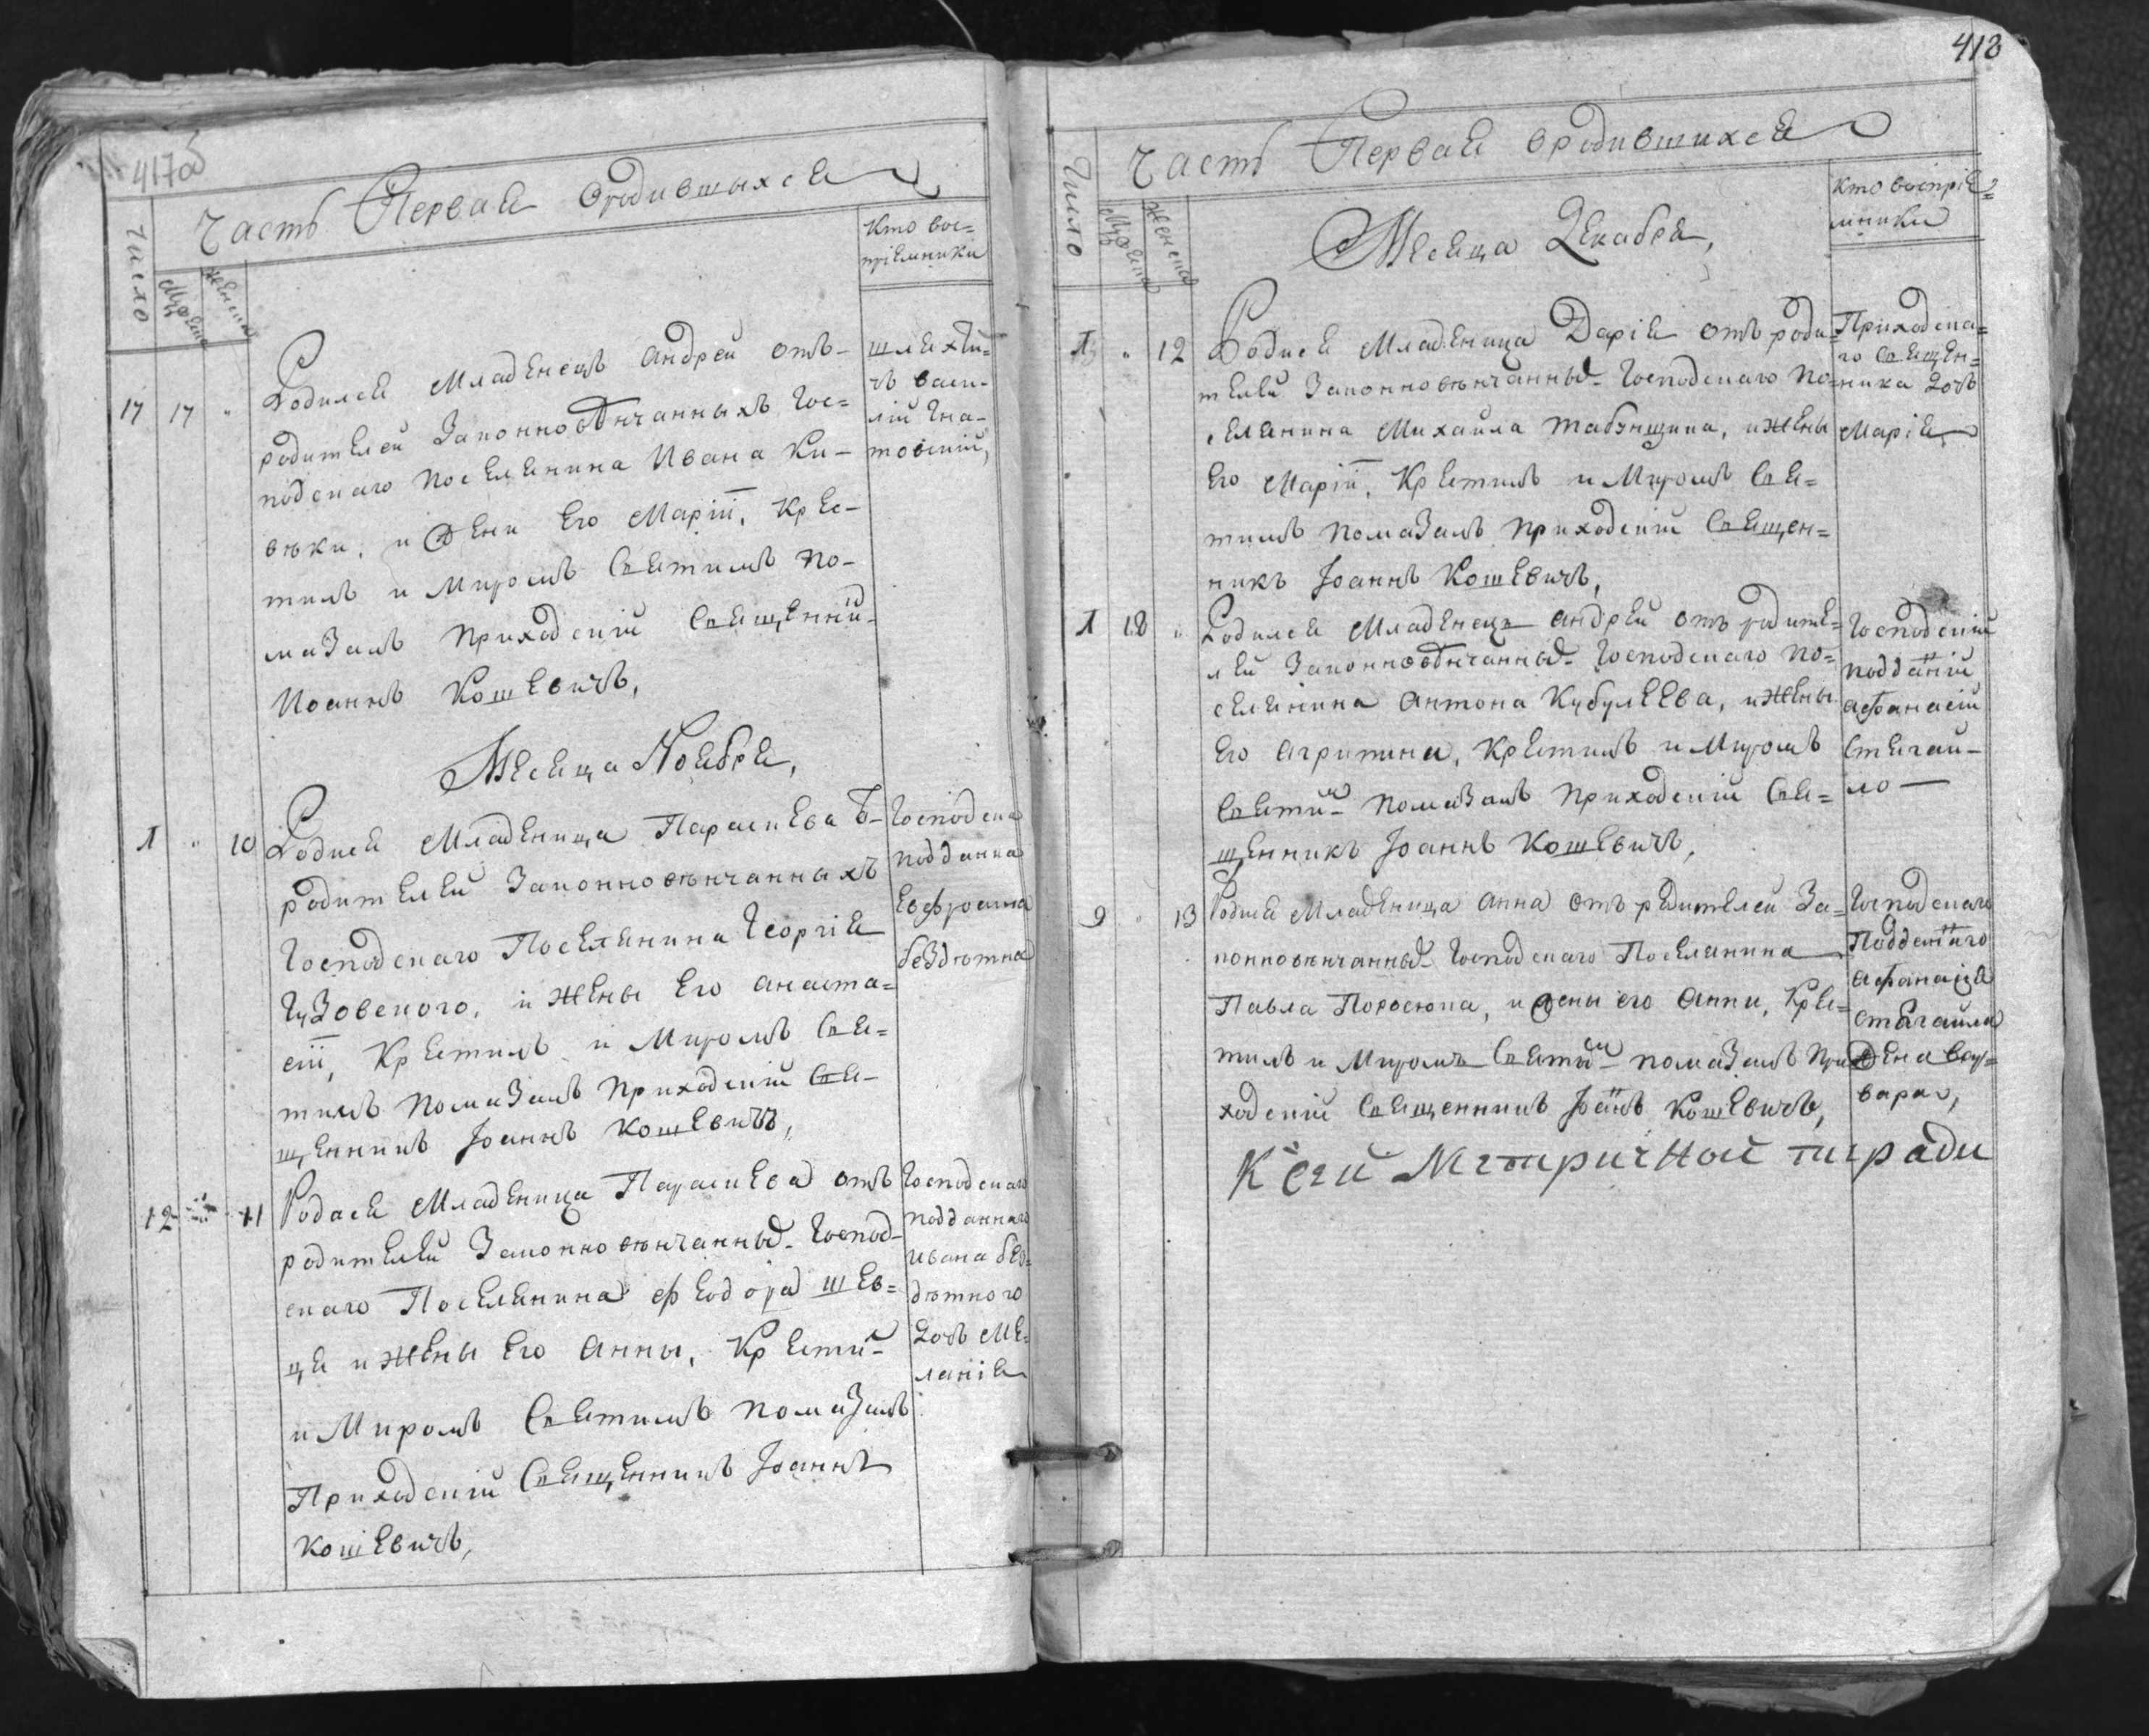 417об
Часть Первая ородившыхся
Число
Мужеска
Женска
Кто вос=
пріемники
17 17 " Родился Младенецъ Андрей отъ-
родителей Законновѣнчанныхъ Гос=
подскаго Поселянина Ивана Ки-
вѣки, и Жени Его Маріи, Крес-
тилъ и Миромъ Святимъ по-
мазалъ Приходскій Священни-
Иоаннъ Кошевичъ,
шляхти=
чъ Васи-
лій Гна-
товскій,
Месяца Ноября,
1 " 10 Родися Младеница Параскева Ѿ-
родителей Законновѣнчанныхъ
Господскаго Поселянина Георгія
Гузовского, и Жены Его Анаста=
сіи, Крестилъ и Миромъ Свя=
тимъ Помазалъ Приходскій Свя-
щенникъ Іоаннъ Кошевичъ,
Господска
подданка
Евфросина
бездѣтна
12 " 11 Родася Младеница Параскева отъ
родителей Законновѣнчанныхъ Господ-
скаго Поселянина Феодора Шев=
ця и Жены Его Анны, Крести-
и Миромъ Святимъ помазалъ
Приходскій Священникъ Іоаннъ
Кошевичъ,
Господскаго
подданнаго
Ивана без=
дѣтного
Дочь Ме=
ланія
418
Часть Первая ородившихся
Число
Мужеска
Женска
Кто воспріе=
мники
Месяца Декабря,
1 " 12 Родися Младеница Дарія отъ роди=
телей Законновѣнчанных Господскаго По=
селянина Михаила Табунщика, и Жены
Его Маріи, Крестилъ и Миромъ Свя=
тимъ помазалъ приходскій Священ=
никъ Іоаннъ Кошевичъ,
Приходска=
го Священ=
ника Дочь
Марія,
1 18 " Родился Младенецъ Андрей отъ родите=
лей Законновѣнчанных Господскаго по=
селянина Антона Кубулеева, и Жены
Его Агрипини, Крестилъ и Миромъ
Святим помазалъ Приходскій Свя=
щенникъ Іоаннъ Кошевичъ,
Господскій
подданій
Афанасій
Стягай-
ло-
9 " 13 Родися Младеница Анна отъ родителей За=
конновѣнчанных Господскаго Поселянина
Павла Поросюка, и Жены его Анни, Кре=
тилъ и Миромъ Святым помазалъ При
ходскій Священникъ Іоаннъ Кошевичъ,
Господскаго
Подданного
Афанасія
Стягайла
Жена Вар=
вара,
К сей Метричной титради